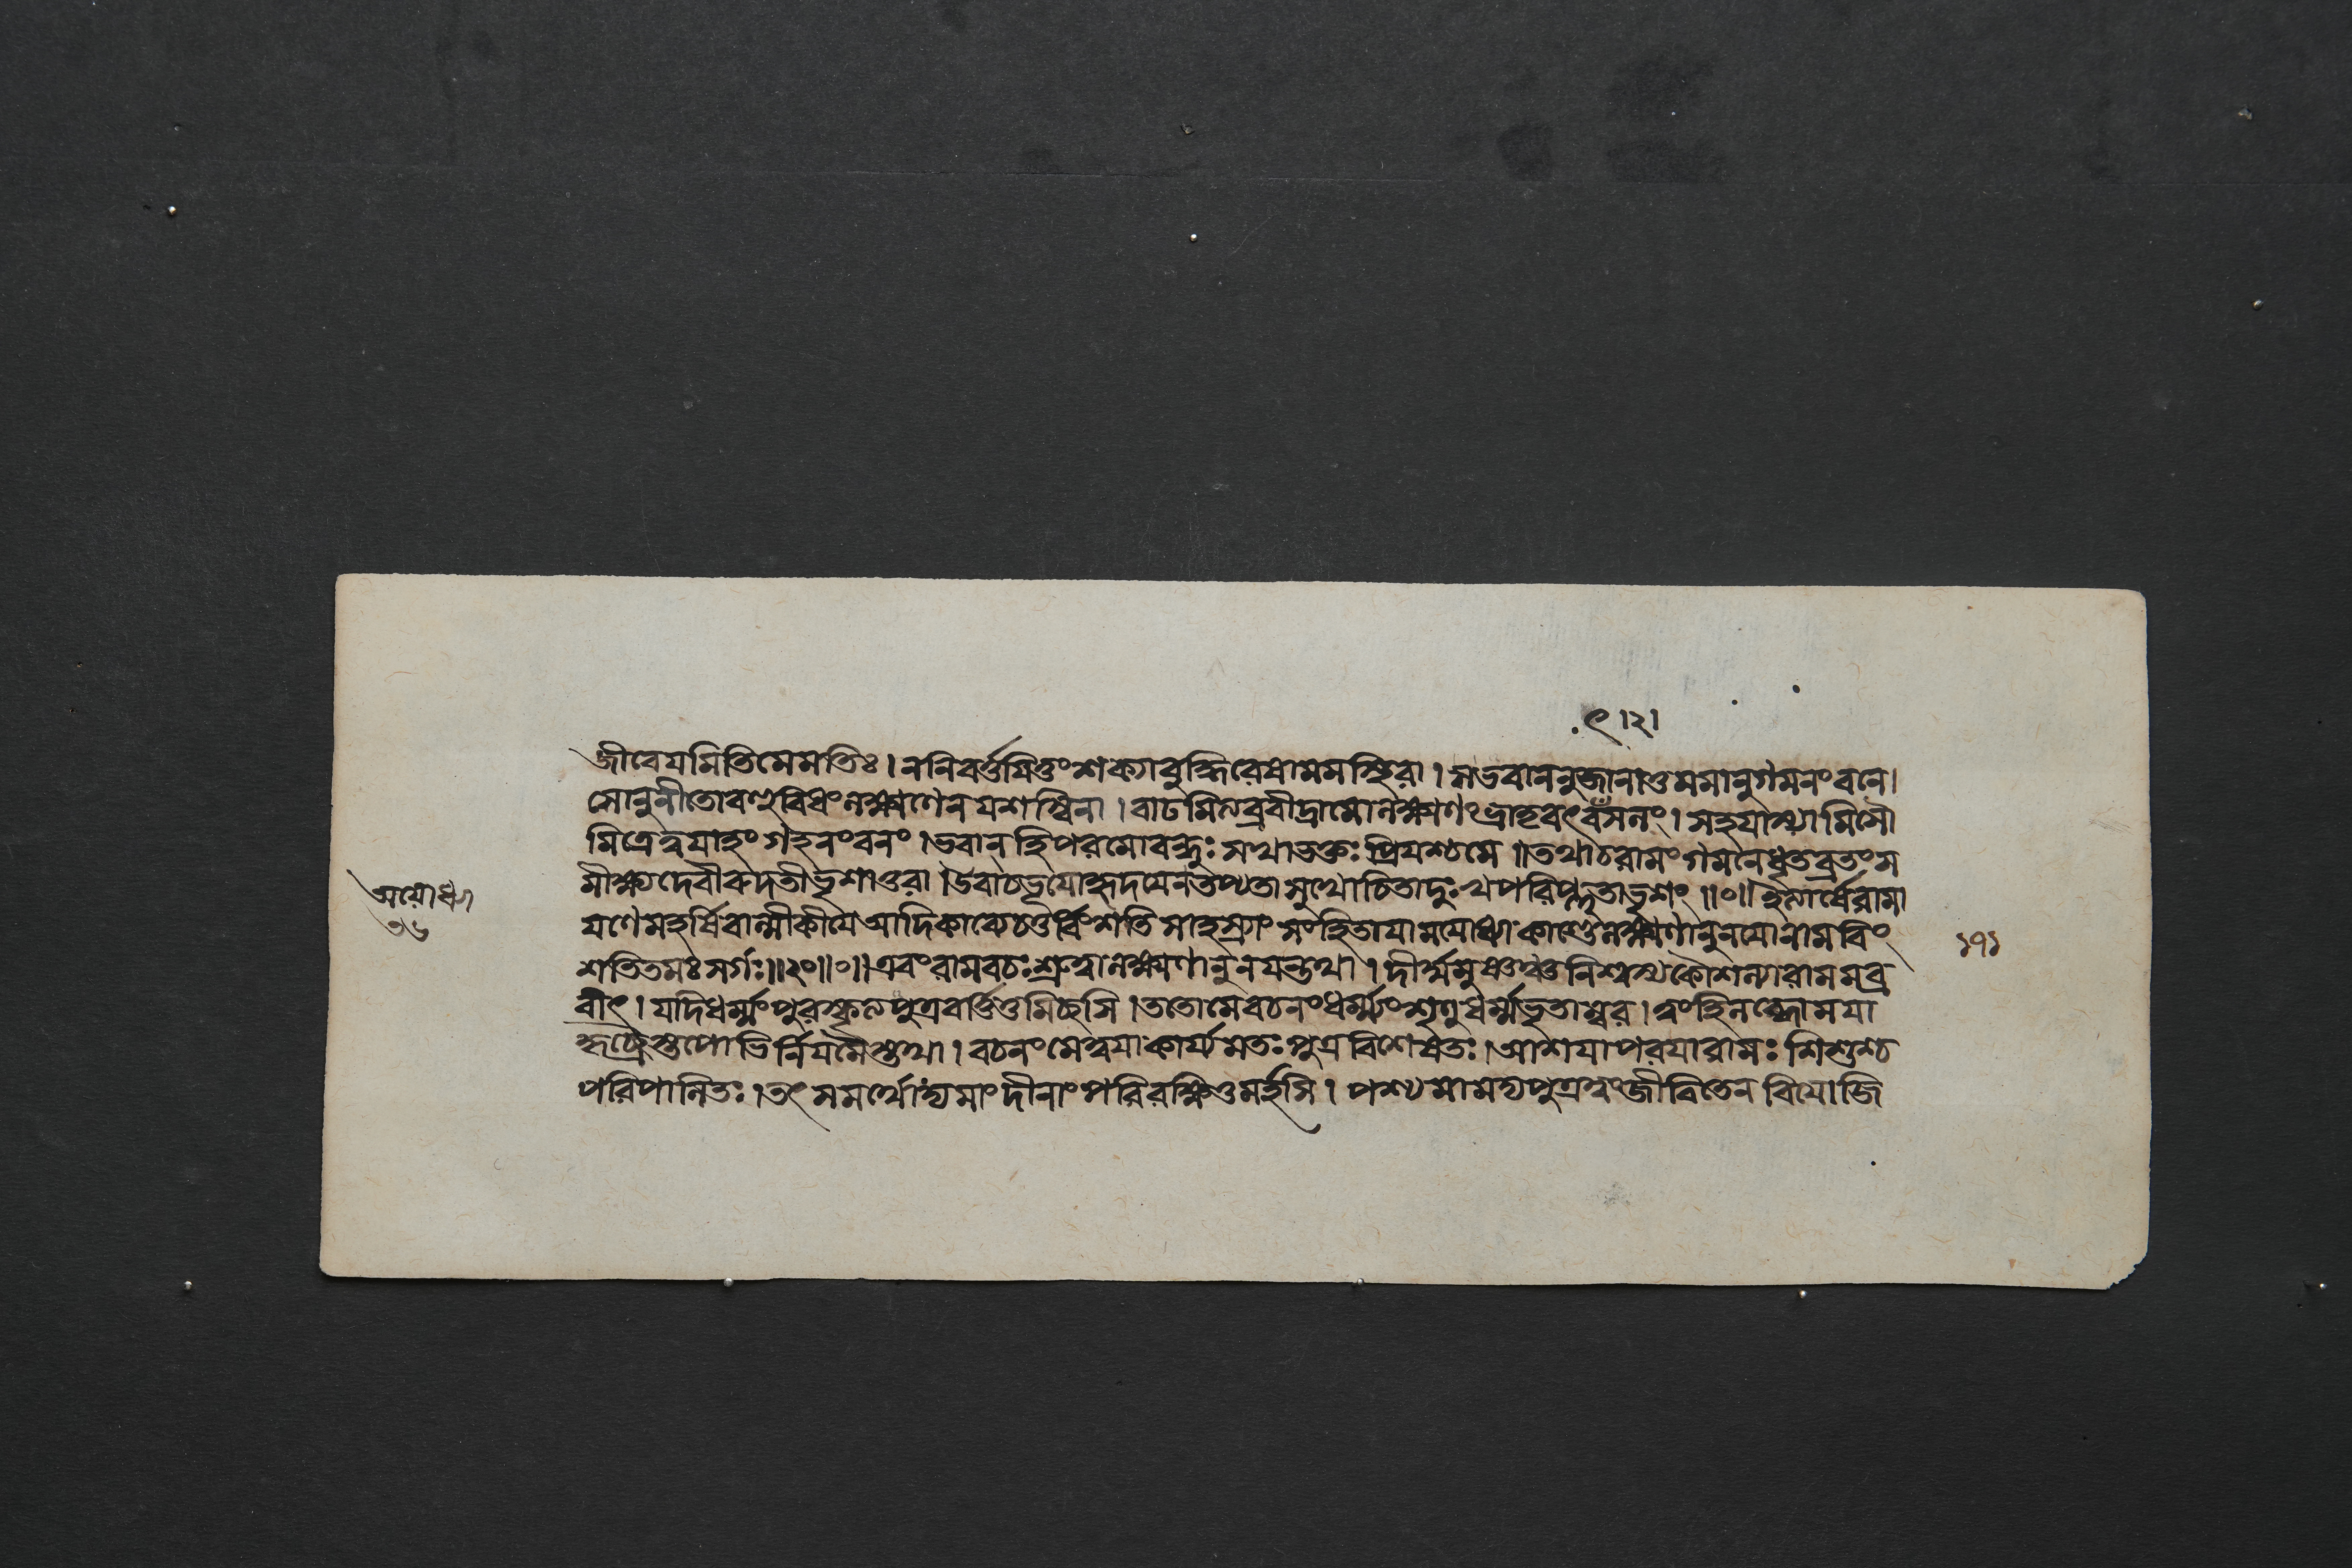 ৎ।২।
জীবেযমিতিমেমতিঃ। ননিবর্ত্তযিতুংশক্যাবুদ্ধিরেষামমস্থিরা। সভবাননুজানাতুমমানুগমনংবনে।
সোনুনীতোবহুবিধংলক্ষ্মণেনযশস্বিনা। বাঢমিত্যব্রবীদ্রামোলক্ষ্মণংভ্রাতৃবৎসলং। সহযাস্যামিসৌ
মিত্রেত্বযাহংগহনংবনং। ভবান্‌হিপরমোবন্ধুঃসখাভক্তঃপ্রিযশ্চমে॥তথাচরামংগমনেধৃতব্রতংস
মীক্ষ্যদেবীরুদতীভৃশাতুরা। উবাচভূযোহৃদযেনতপ্যতাসুখোচিতাদুঃখপরিপ্লুতাভৃশং॥০॥ইত্যার্ষেরামা
যণেমহর্ষিবাল্মীকীযেআদিকাব্যেচতুর্ব্বিংশতিসাহস্র্যাংসংহিতাযামযোধ্যাকাণ্ডেলক্ষ্মণানুনযোনামবিং
শতিতমঃসর্গঃ॥২০॥০॥এবংরামবচঃশ্রুত্বালক্ষ্মণানুনযন্তথা। দীর্ঘমুষ্ণঞ্চনিশ্বস্যকৌশল্যারামমব্র
বীৎ। যদিধর্ম্মংপুরস্কৃত্যপুত্রবর্ত্তিতুমিচ্ছসি। ততোমেবচনংধর্ম্ম্যংশৃণুধর্ম্মভৃতাম্বর। ত্বংহিলব্ধোমযা
কৃচ্ছ্রৈস্তপোভির্নিযমৈস্তথা। বচনংমেত্বযাকার্য্যমতঃপুত্রবিশেষতঃ। আশযাপরযারামঃশিশুশ্চ
পরিপালিতঃ। তৎসমর্থোদ্যমাংদীনাংপরিরক্ষিতুমর্হসি। পশ্যমামদ্যপুত্রত্বংজীবিতেনবিযোজি
অযোধ্যা
৩৬
১৭১